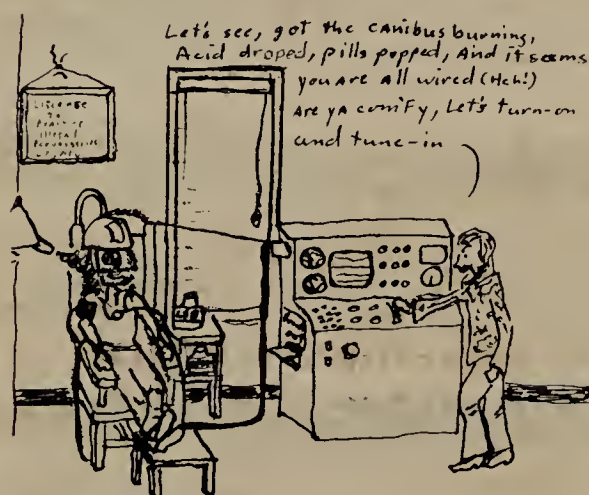 Let's see, got the canibus burning,
Acid droped, pills popped, And it seems
you are all wired (Heh!)
Are ya comify, Let's turn-on
and tune-in
License
To
Practice
Illegal